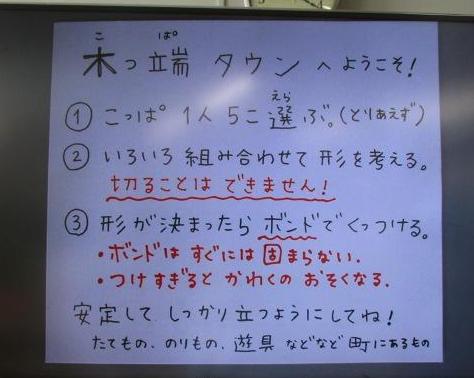 こ っぱ
木っ端 タウン へようこそ!
① こっぱ 1人 5こ 選ぶ。(とりあえず)
えら
② いろいろ 組み合わせて 形を考える。
切ることは できません!
③ 形が決まったら ボンドでくっつける。
・ボンドは すぐには 固まらない.
・つけすぎると かわくの おそくなる.
安定して しっかり立つようにしてね!
たてもの、のりもの、遊具 などなど 町にあるもの